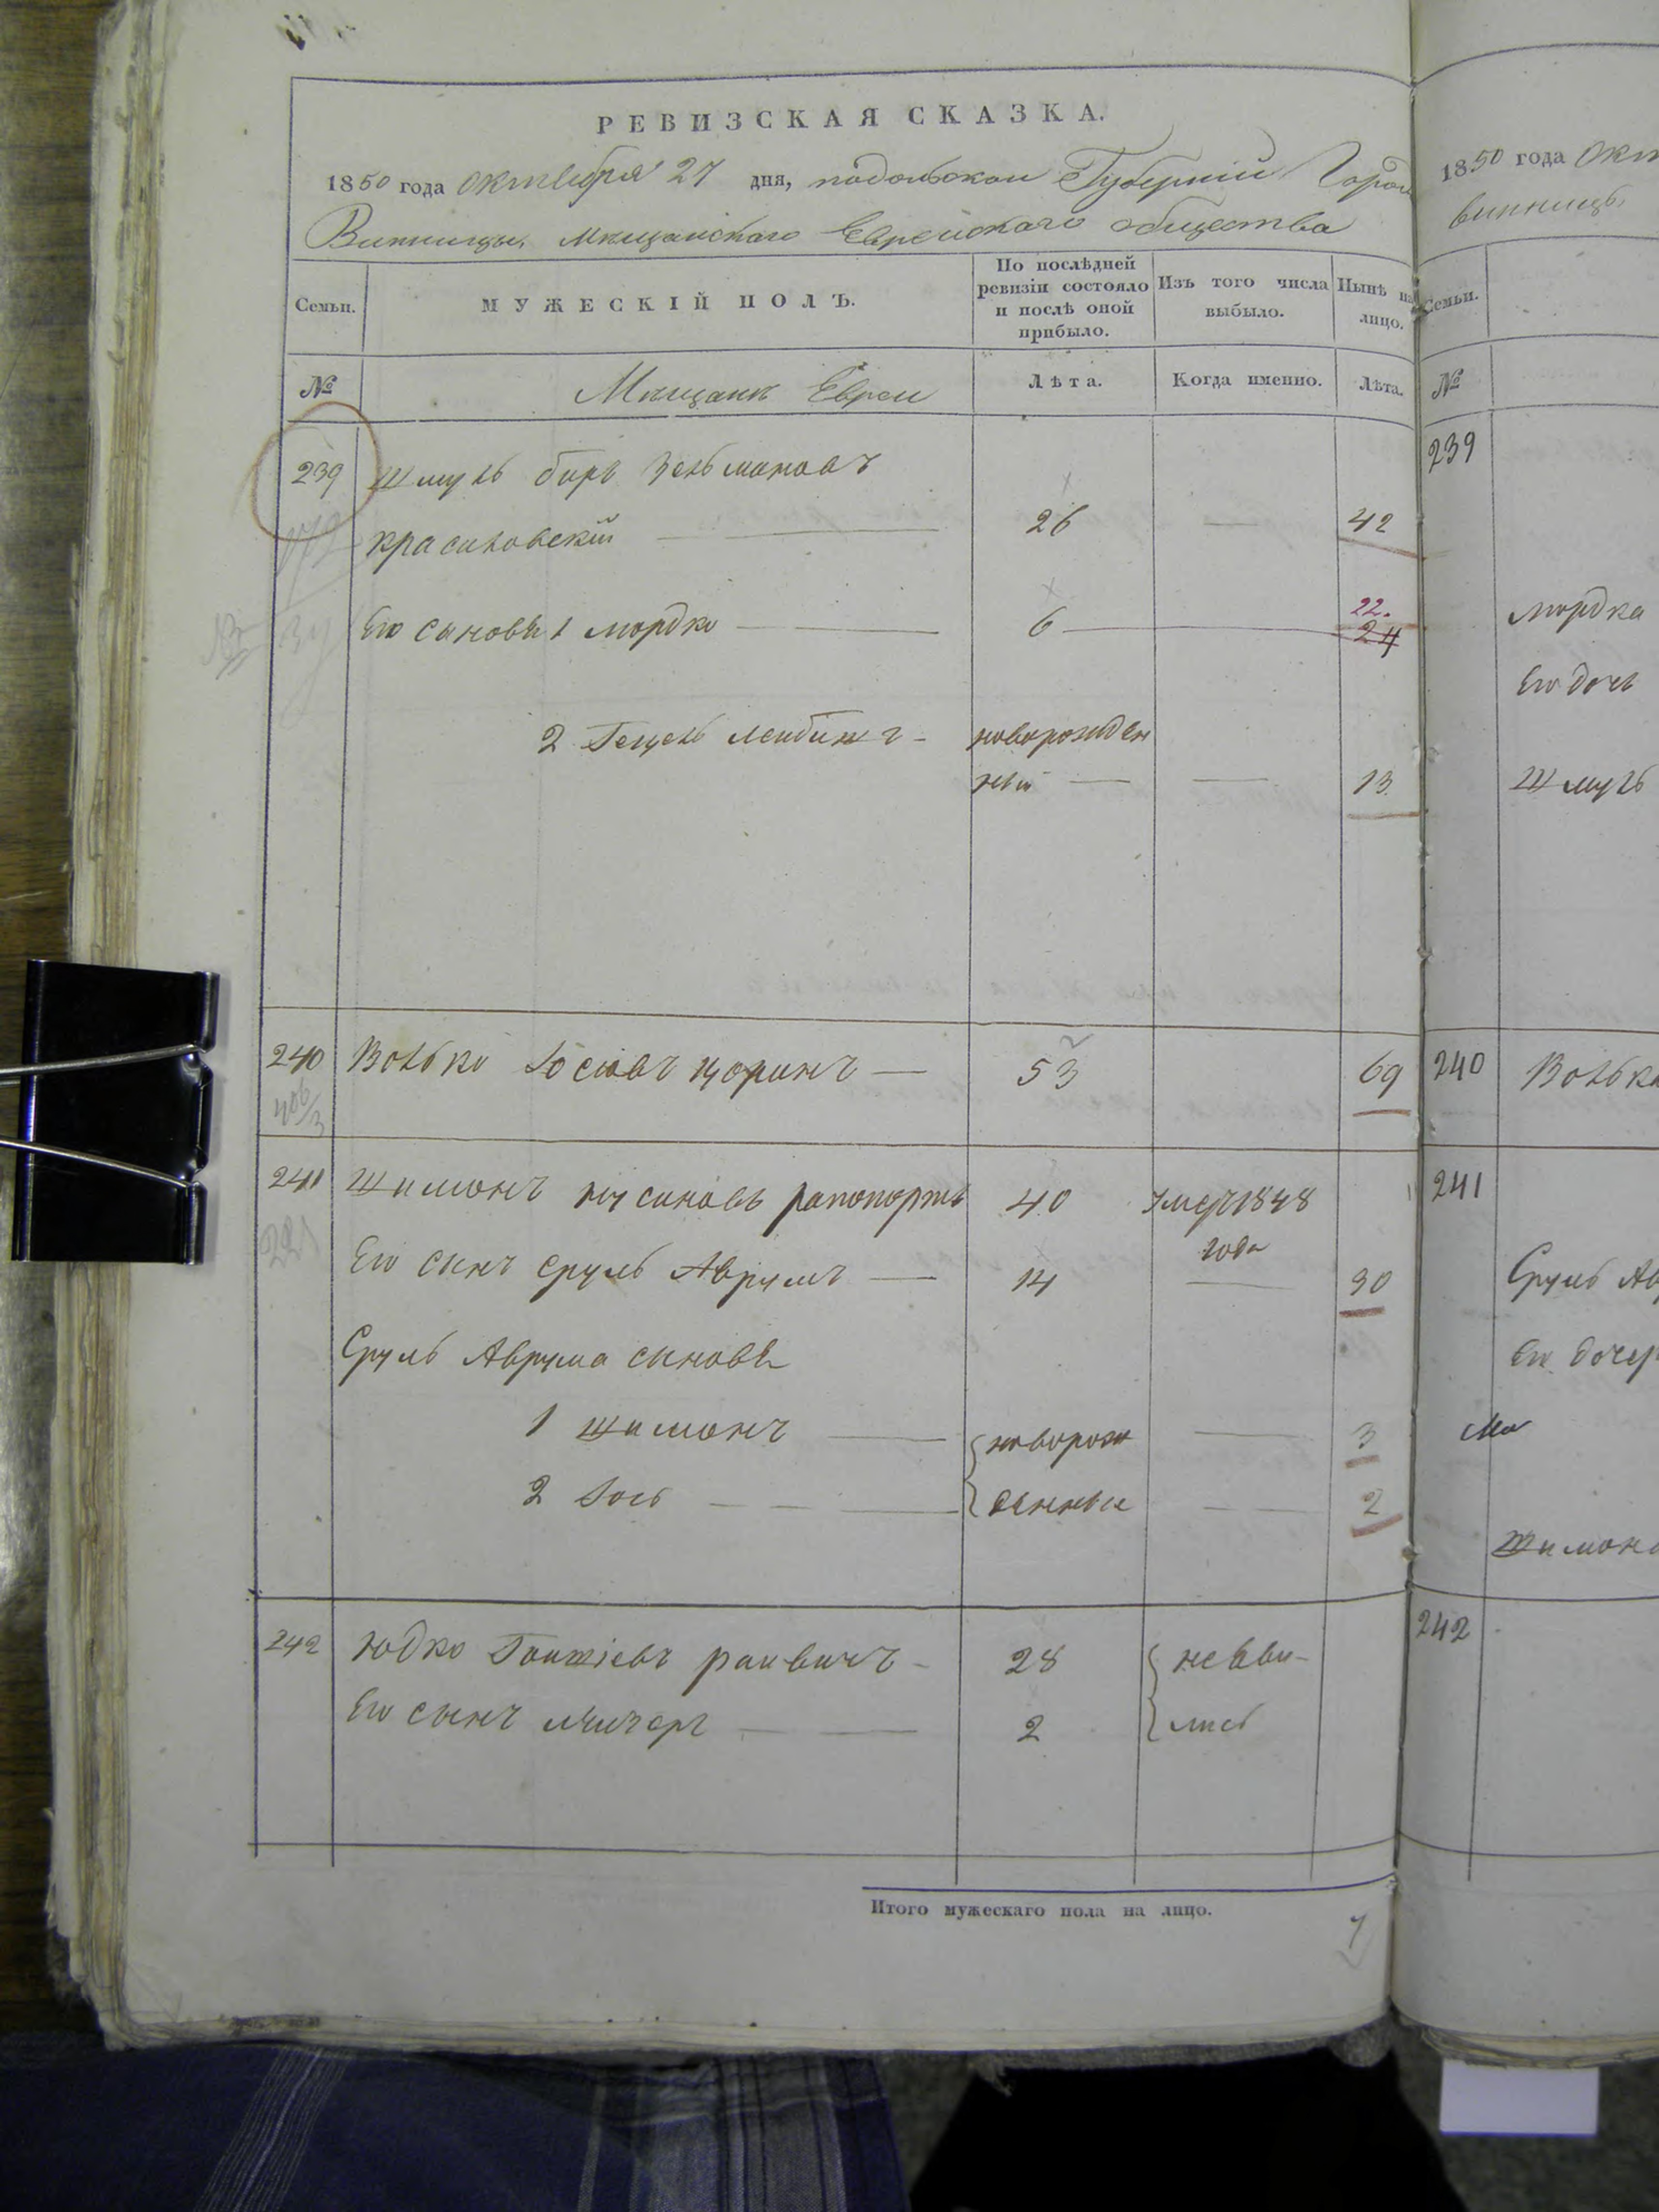 РЕВИЗСКАЯ СКАЗКА.
1850 года октября 27 дня, подольскои Губерніи Горо
Винницы, Мѣщанскаго Еврейскаго общества
Семьи.
МУЖЕСКІЙ ПОЛЪ.
По послѣдней ревизіи состояло и послѣ оной прибыло.
Изъ того числа выбыло.
Нынѣ на лицо.
№
Мѣщанѣ Евреи
Лѣта.
Когда именно.
Лѣта.
239 Шмуль беръ Зельмановъ
красиловскій 26 42
22.
Его сыновя 1 мордко 6 24
2 Гецель Лейбишъ новорожден
ный 13
240 Волько Іосіовъ Цоринъ 53 69
406/3
241 Шимонъ нусиновъ рапопортъ 40 умер 1848
года
221
Его сынъ Сруль Аврумъ 14 30
Сруль Аврума сыновя
1 Шимонъ новорож 3
2 Іось денные 2
242 Юдко раивичъ 28 не яви-
Его сынъ 2 лись
Итого мужескаго пола на лицо. 7
1850 года Окт
винницы
Семьи.
№
239
мордка
Его дочь
Шмуль
240 Волька
241
Сруль Ав
Его дочер
Ма
Шимона
242